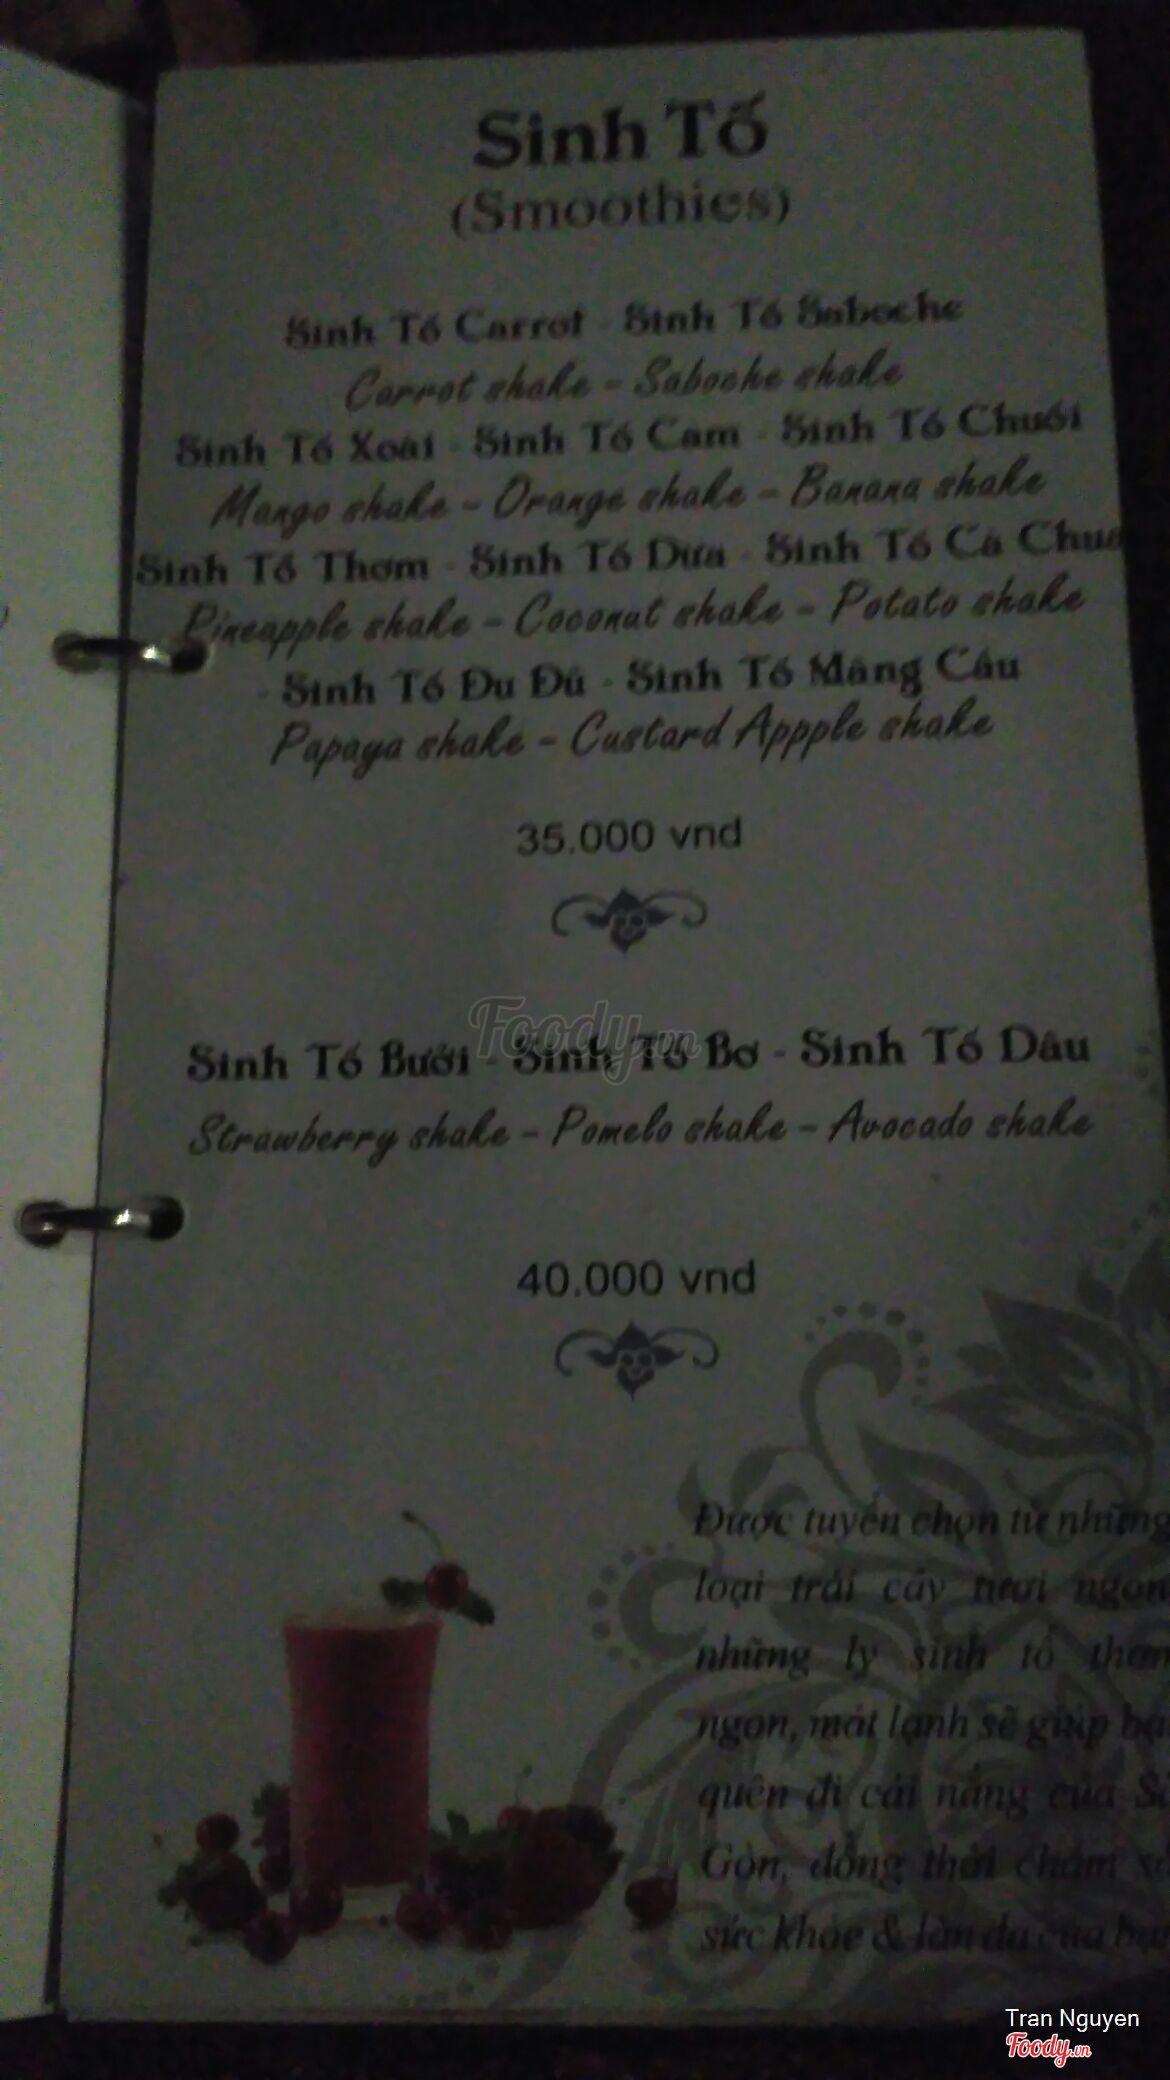 Sinh Tố
(Smoothies)
Sinh Tố Carrot - Sinh Tố Saboche
Carrot shake - Saboche shake
Sinh Tố Xoài - Sinh Tố Cam - Sinh Tố Chuối
Mango shake - Orange shake - Banana shake
Sinh Tố Thơm - Sinh Tố Dừa - Sinh Tố Cà Chua
Pineapple shake - Coconut shake - Potato shake
- Sinh Tố Đu Đủ - Sinh Tố Mãng Cầu
Papaya shake - Custard Appple shake
35.000 vnd
Foody.vn
Sinh Tố Bưởi - Sinh Tố Bơ - Sinh Tố Dâu
Strawberry shake - Pomelo shake - Avocado shake
40.000 vnd
Được tuyển chọn từ những
loại trái cây tươi ngon
những ly sinh tố thơm
ngon, mát lạnh sẽ giúp
quên đi cái nắng của
Gòn, đồng thời chăm
sức khỏe & làn da của
Tran Nguyen
Foody.vn